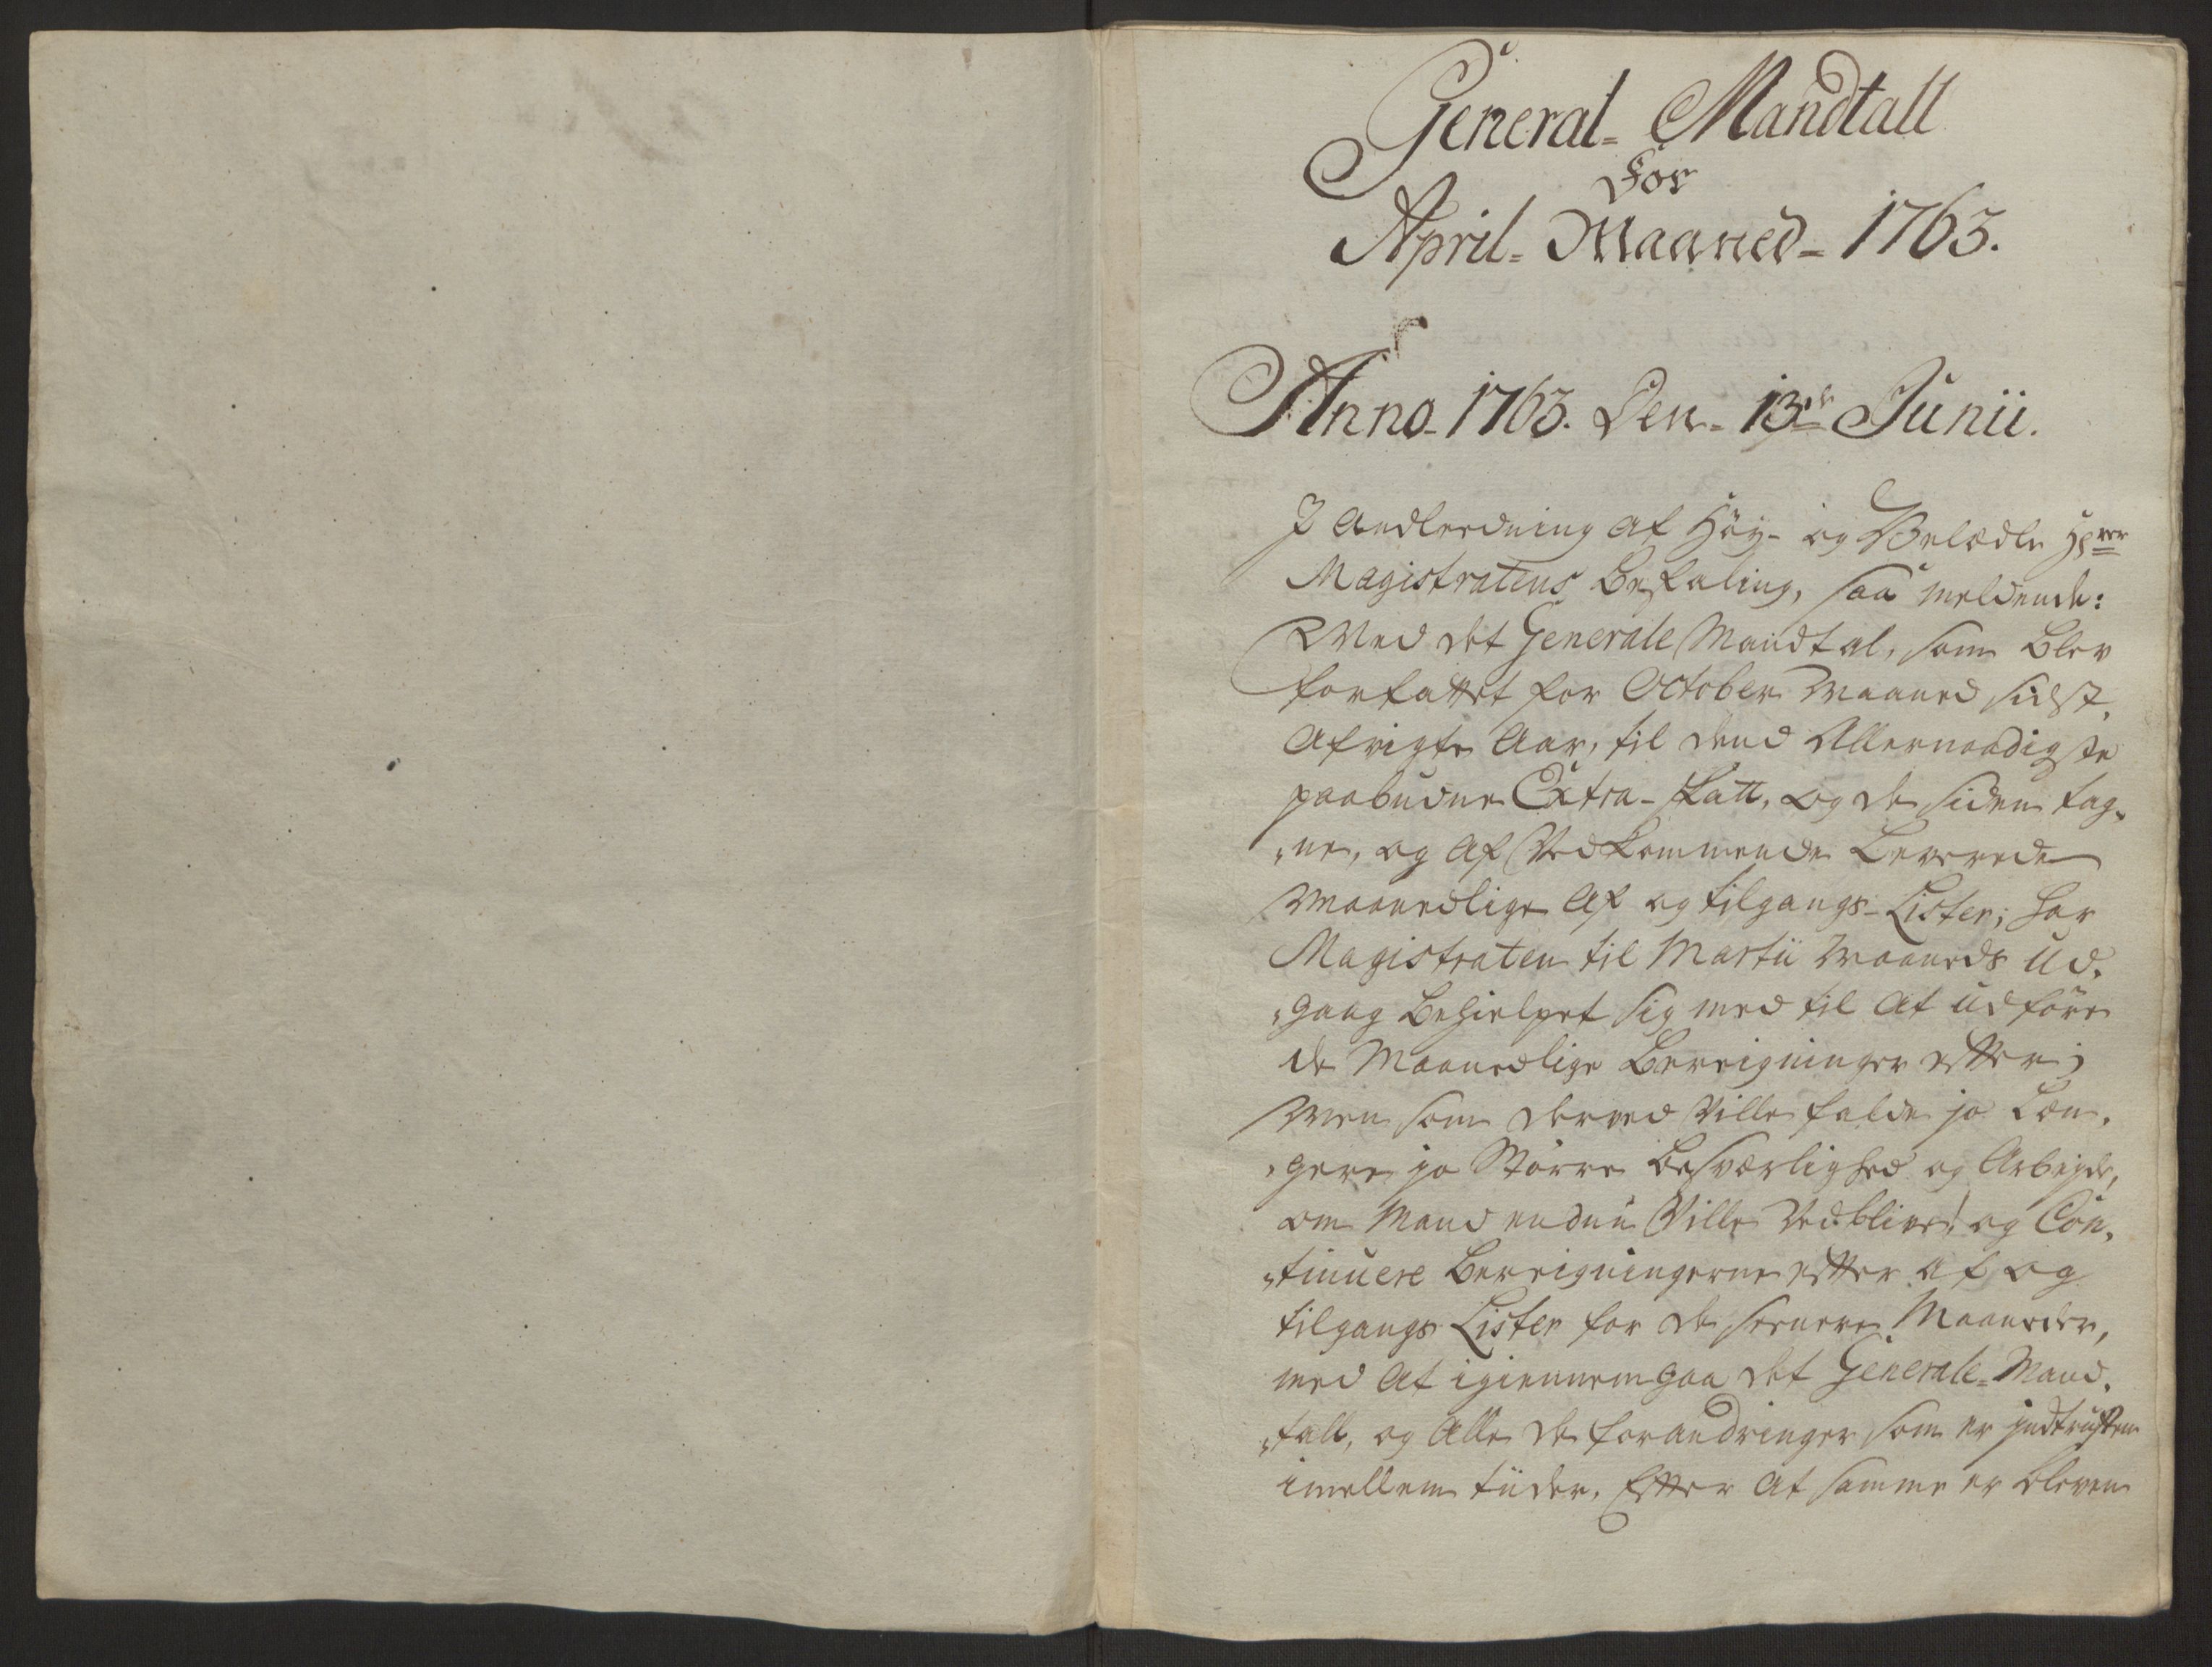 General- Mandtall
For
April- Maaned- 1763.
Anno- 1763. Den- 13de Junii.
I Andleedning af Höy- og Velædle Hrrer
Magistratens Befaling, saa meldende:
Ved det Generale Mandtal, som blev
forfattet for October Maaned sidst
afvigte Aar, til dend Allernaadigste
paabudne Extra-Skatt, og de siden tag-
„ne, og af Vedkommende Leverede
Maanedlige Af og tilgangs-Lister; har
Magistraten til Martii Maaneds Ud-
„gang behielpet sig med til at udföre
de Maanedlige Bereigninger efter;
Men som derved Ville falde jo Læn-
„gere jo Større besværlighed og Arbejde,
om Mand endnu Ville Vedblive, og Con-
„tinuere Bereigningerne efter af og
tilgangs Lister for de seenere Maaneder,
med at igiennemgaa det Generale-Mand-
„tall, og Alle de forandringer som er indtruffen
imellem tiider. Efter at samme er bleven